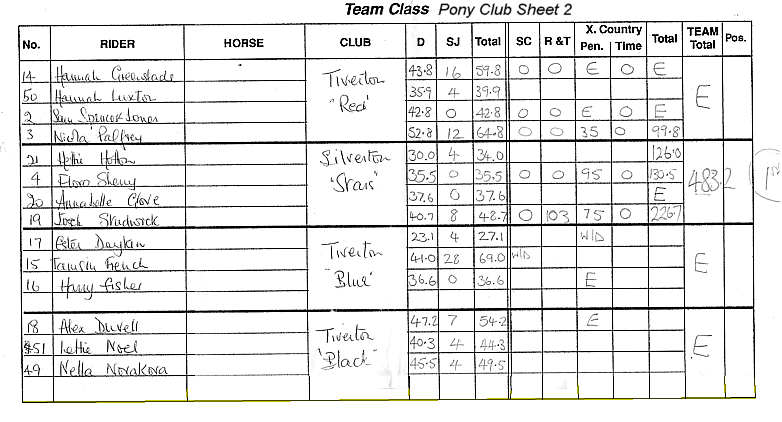 Team Class Pony Club Sheet 2
No. RIDER HORSE CLUB D SJ Total SC R & T X. Country Pen. Time Total TEAM Total Pos.
14 Hannah Greenslade Tiverton "Red" 43.8 16 59.8 O O E O E E
50 Hannah Luxton 35.9 4 39.9
2 Sam Spencer Jones 42.8 0 42.8 O O E O E
3 Nicola Palfrey 52.8 12 64.8 O O 35 O 99.8
21 Hettie Silverton "Stars" 30.0 4 34.0 126.0 483.2 1st
4 Flora Sherry 35.5 0 35.5 O O 95 O 130.5
20 Annabelle Clove 37.6 0 37.6 E
19 Josh Strudwick 40.7 8 48.7 O 103 75 O 226.7
17 Tiverton "Blue" 23.1 4 27.1 W/D E
15 Tamsin French 41.0 28 69.0 W/D
16 Harry Fisher 36.6 0 36.6 E
18 Alex Duvell Tiverton "Black" 47.2 7 54.2 E E
51 Lettie Noel 40.3 4 44.3
49 Nella Novakova 45.5 4 49.5